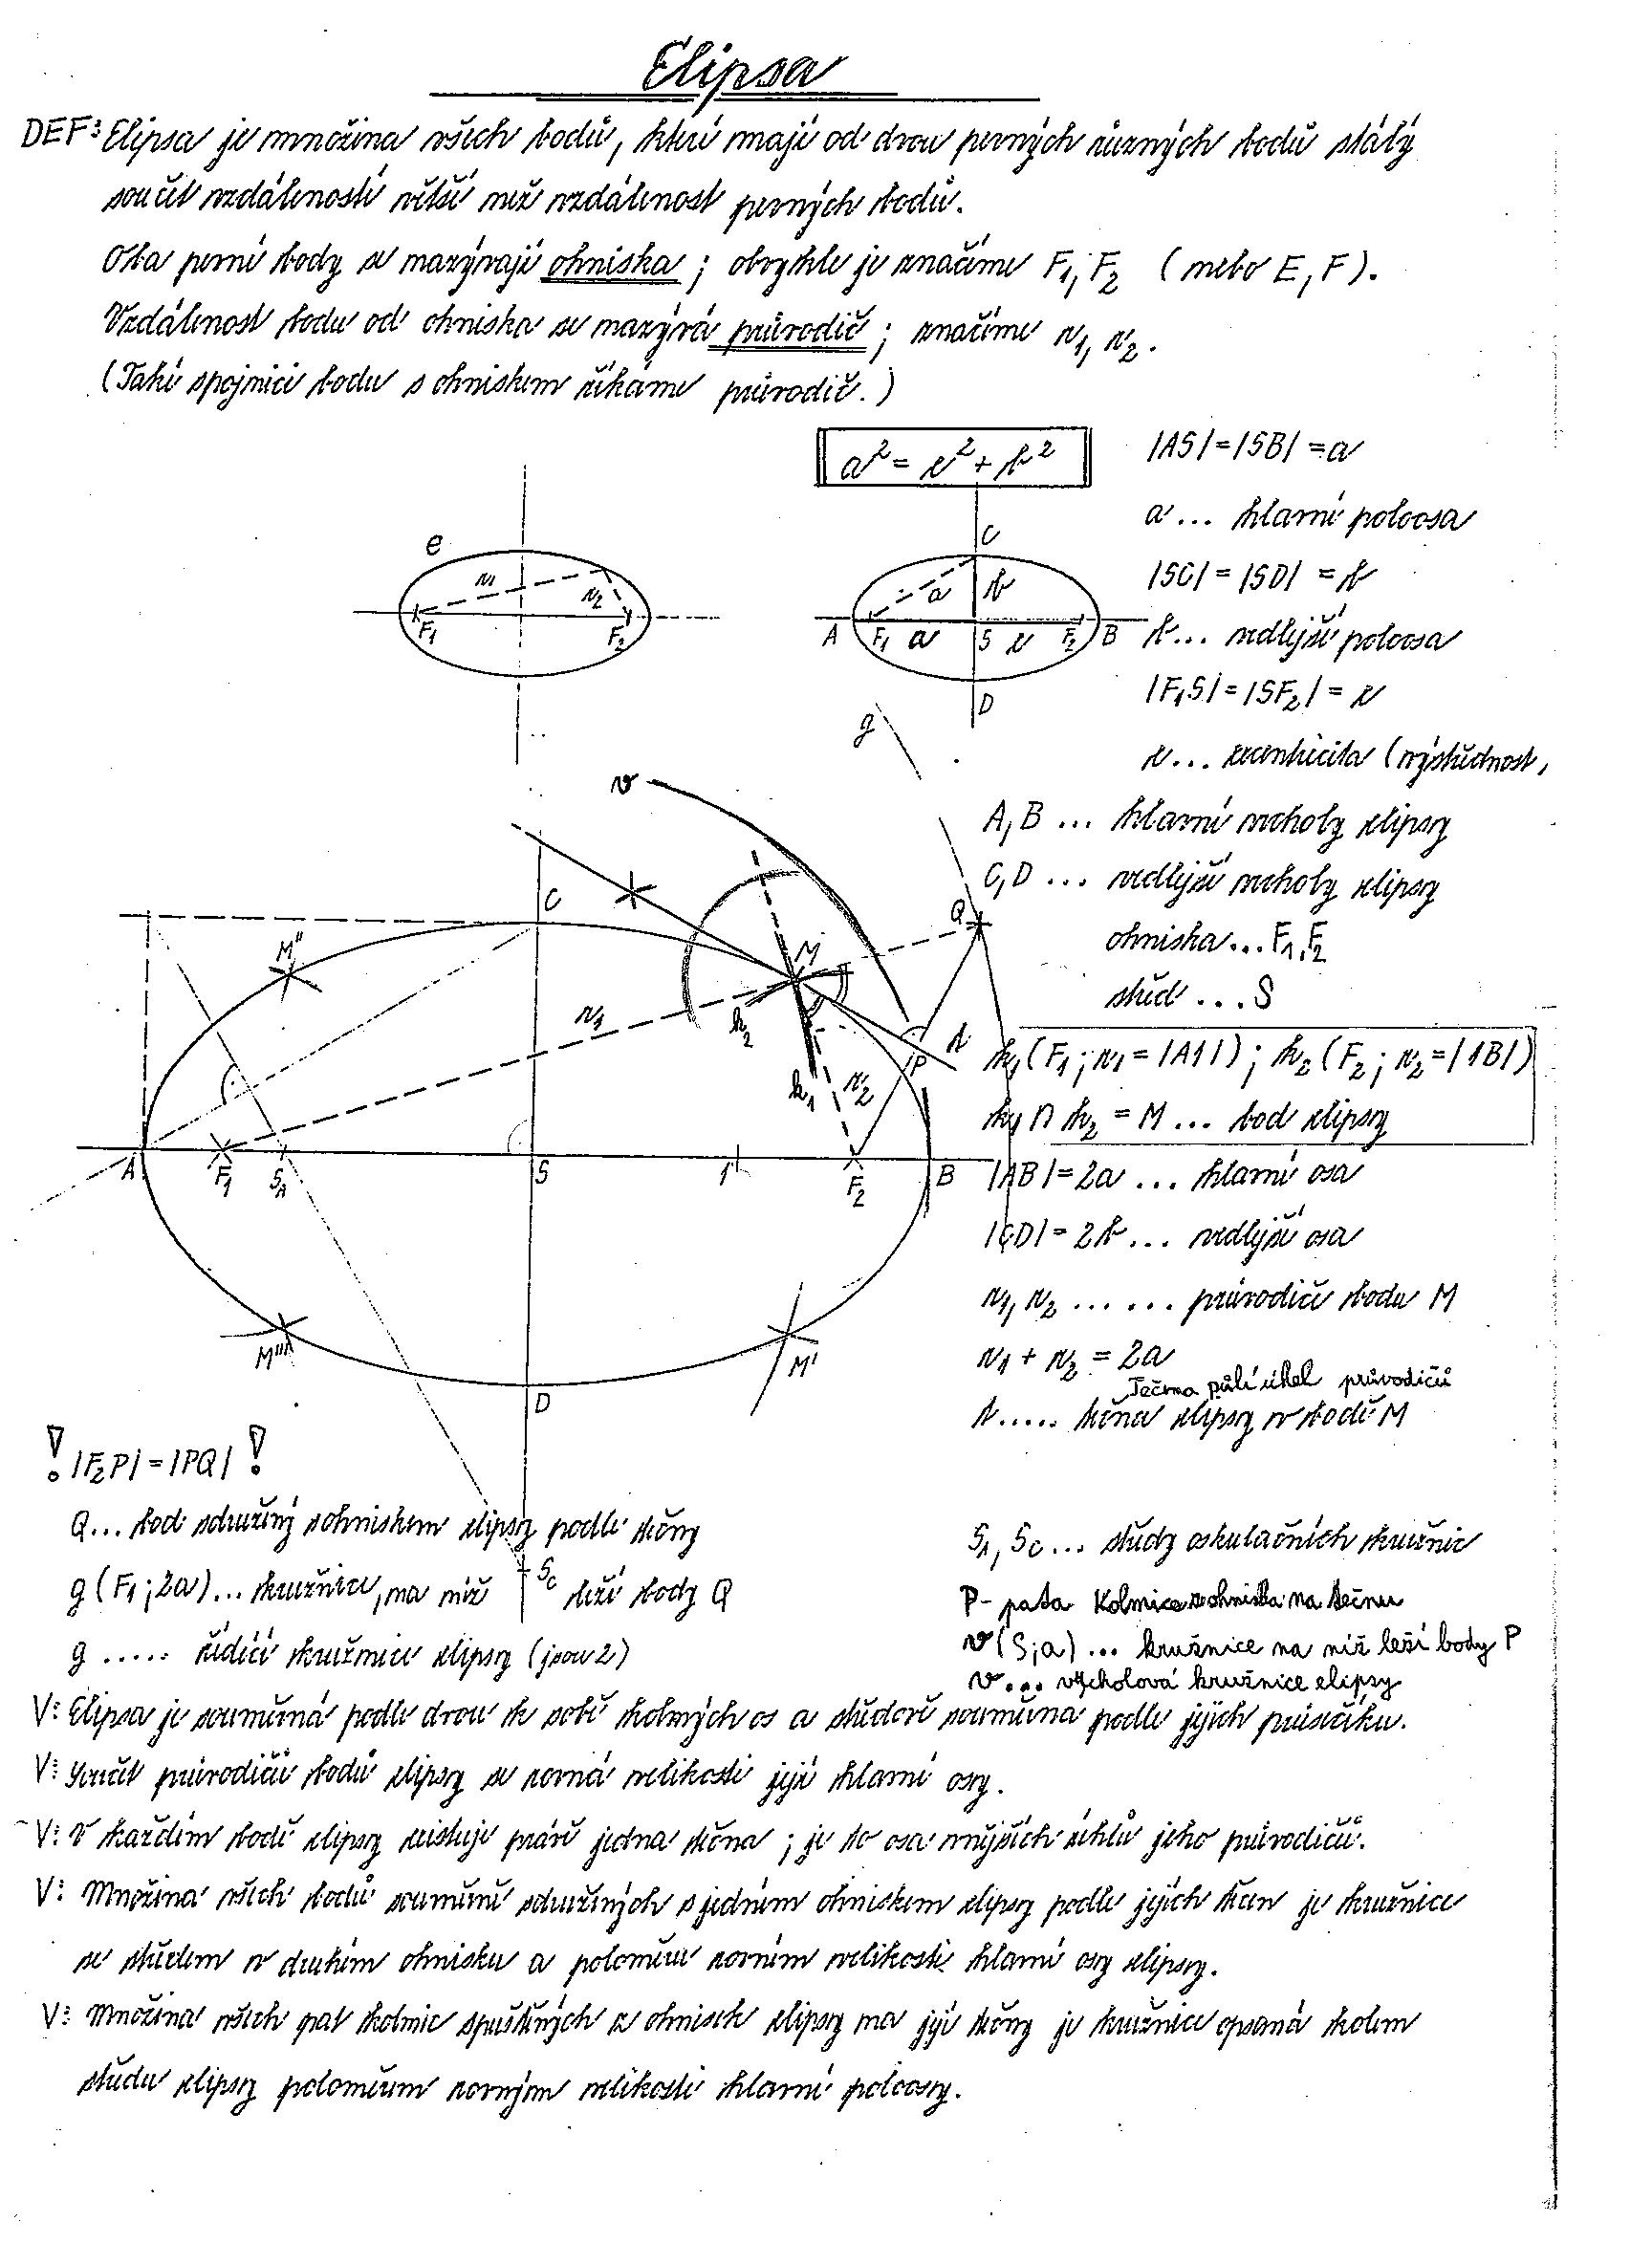 Elipsa
DEF: Elipsa je množina všech bodů, které mají od dvou pevných různých bodů stálý
součet vzdáleností větší než vzdálenost pevných bodů.
Oba pevné body se nazývají ohniska; obvykle je značíme F1, F2 (nebo E, F).
Vzdálenost bodu od ohniska se nazývá průvodič; značíme r1, r2.
(Také spojnici bodu s ohniskem říkáme průvodič.)
a² = e² + b²
|AS| = |SB| = a
a ... hlavní poloosa
|SC| = |SD| = b
b ... vedlejší poloosa
|F1S| = |SF2| = e
e ... excentricita (výstřednost,
A, B ... hlavní vrcholy elipsy
C, D ... vedlejší vrcholy elipsy
ohniska ... F1, F2
střed ... S
k1 (F1; r1 = |A1|); k2 (F2; r2 = |1B|)
k1 ∩ k2 = M ... bod elipsy
|AB| = 2a ... hlavní osa
|CD| = 2b ... vedlejší osa
r1, r2 ...... průvodiče bodu M
r1 + r2 = 2a
Tečna půlí úhel průvodičů
t ..... tečna elipsy v bodě M
e
r1
r2
F1
F2
C
a
b
A
F1
a
S
e
F2
B
D
g
v
C
M''
M
Q
r1
k2
t
P
k1
r2
A
F1
SA
S
1
F2
B
M'''
M'
D
! |F2P| = |PQ| !
Q ... bod sdružený s ohniskem elipsy podle tečny
g (F1; 2a) ... kružnice, na níž leží body Q
Sc
g ..... řídící kružnice elipsy (jsou 2)
SA, Sc ... středy oskulačních kružnic
P - pata kolmice z ohniska na tečnu
v (S; a) ... kružnice na níž leží body P
v ... vrcholová kružnice elipsy
V: Elipsa je souměrná podle dvou k sobě kolmých os a středově souměrná podle jejich průsečíku.
V: Součet průvodičů bodů elipsy se rovná velikosti její hlavní osy.
V: V každém bodě elipsy existuje právě jedna tečna; je to osa vnějších úhlů jeho průvodičů.
V: Množina všech bodů souměrně sdružených s jedním ohniskem elipsy podle jejích tečen je kružnice
se středem v druhém ohnisku a poloměru rovném velikosti hlavní osy elipsy.
V: Množina všech pat kolmic spuštěných z ohnisek elipsy na její tečny je kružnice opsaná kolem
středu elipsy poloměrem rovným velikosti hlavní poloosy.